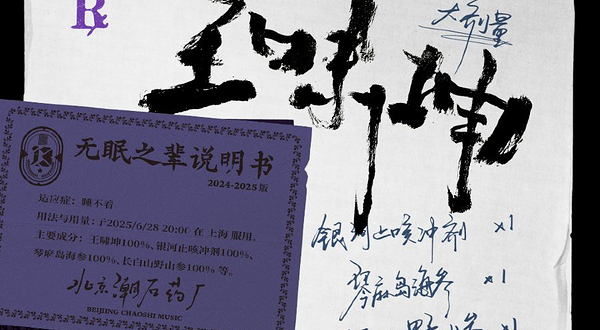 R
大剂量
王啸坤
无眠之辈说明书
2024-2025版
适应症：睡不着
用法与用量：于2025/6/28 20:00 在 上海 服用。
主要成分：王啸坤100%、银河止咳冲剂100%、
琴麻岛海参100%、长白山野山参100% 等。
北京潮石药厂
BEIJING CHAOSHI MUSIC
银河止咳冲剂 x1
琴麻岛海参 x1